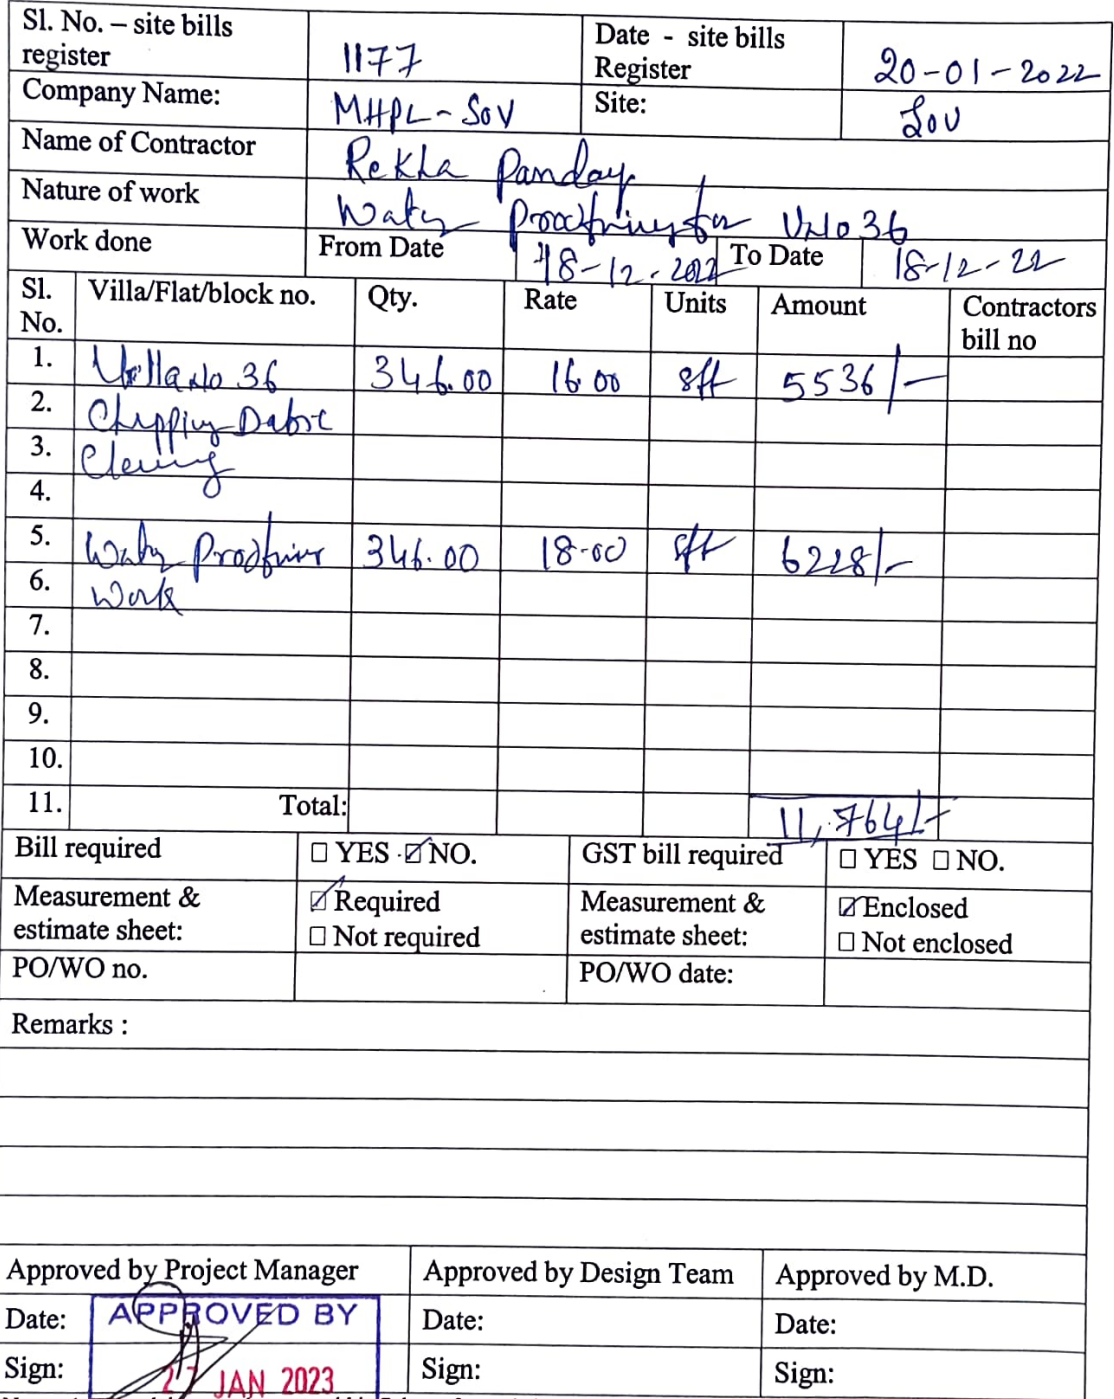 Sl. No. – site bills register 1177 Date - site bills Register 20-01-2022
Company Name: MHPL-SOV Site: SOV
Name of Contractor Rekha Panday
Nature of work Water Proofing for V.No 36
Work done From Date 18-12-2022 To Date 18-12-22
Sl. No. Villa/Flat/block no. Qty. Rate Units Amount Contractors bill no
1. Villa No 36 346.00 16.00 sft 5536/-
2. Chipping Dabric
3. Clening
4.
5. Water Proofing 346.00 18-00 sft 6228/-
6. Work
7.
8.
9.
10.
11. Total: 11,764/-
Bill required ☐ YES ☑ NO. GST bill required ☐ YES ☐ NO.
Measurement & estimate sheet: ☑ Required ☐ Not required Measurement & estimate sheet: ☑ Enclosed ☐ Not enclosed
PO/WO no. PO/WO date:
Remarks :
Approved by Project Manager Approved by Design Team Approved by M.D.
Date: APPROVED BY Date: Date:
Sign: 27 JAN 2023 Sign: Sign: